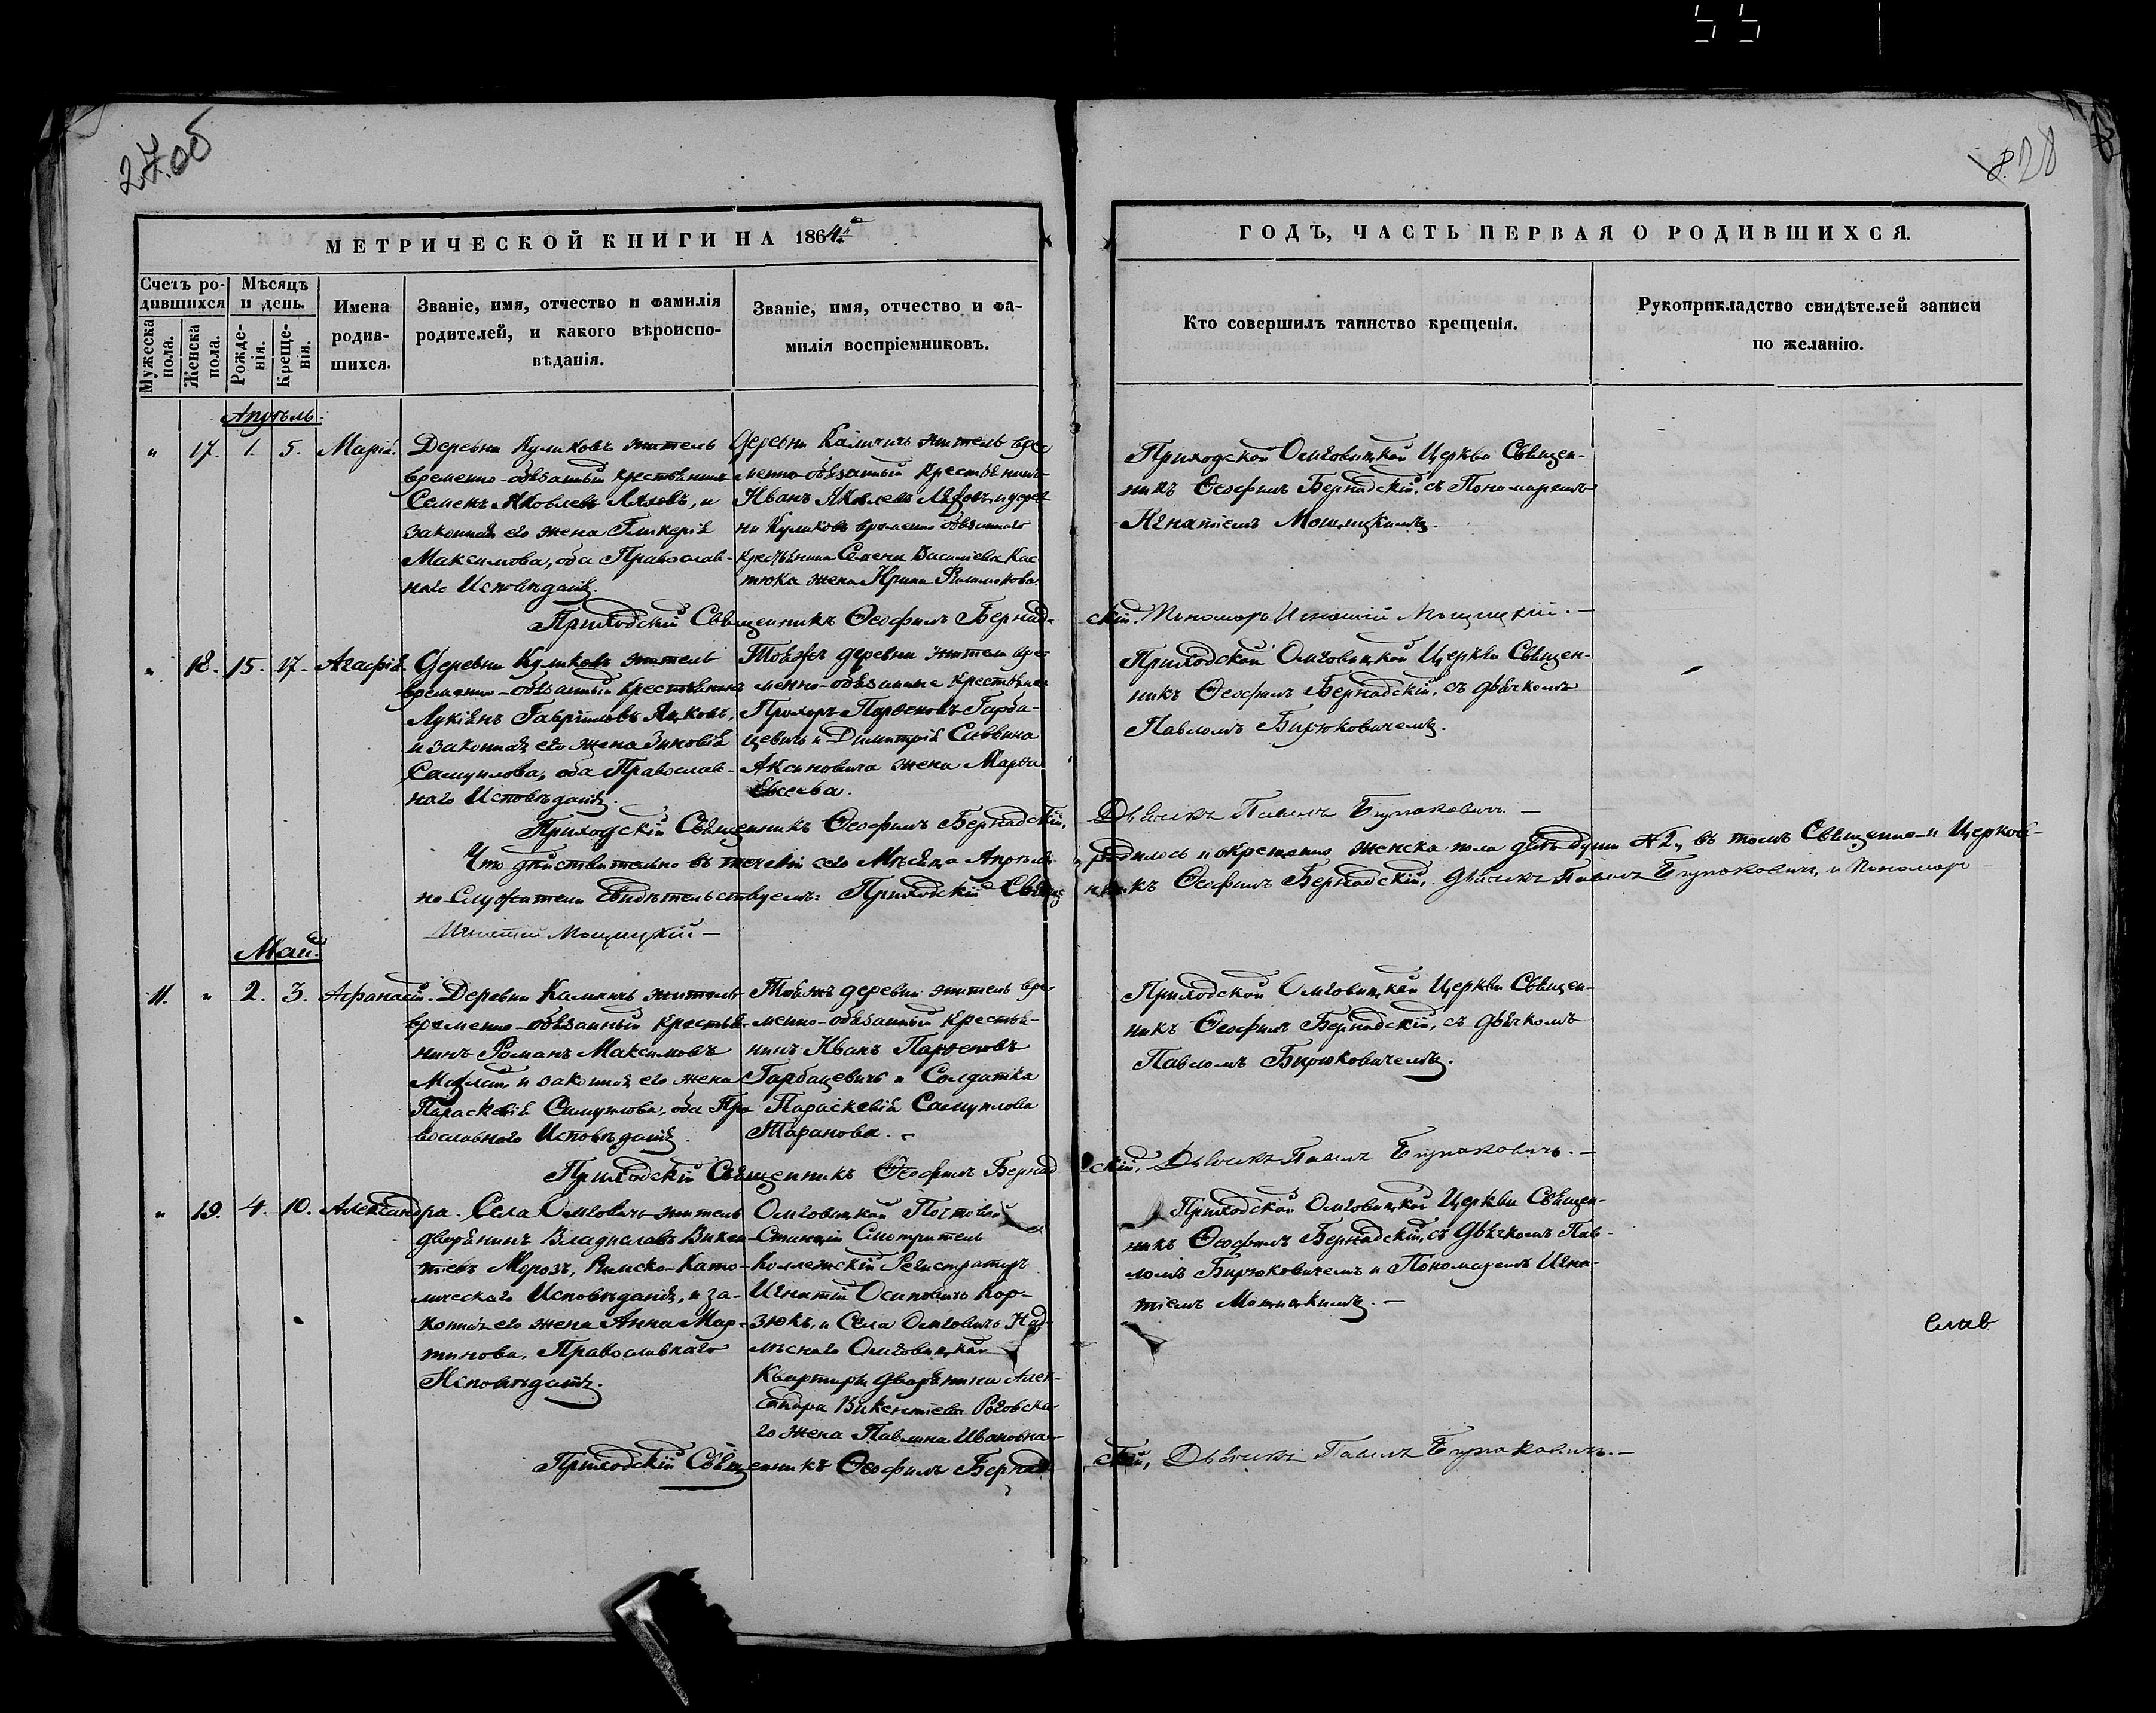 27.об
28
МЕТРИЧЕСКОЙ КНИГИ НА 1864й
ГОДЪ, ЧАСТЬ ПЕРВАЯ О РОДИВШИХСЯ.
Счетъ ро-
дившихся
Мужеска
пола.
Женска
пола.
Мѣсяцъ
и день.
Рожде-
нія.
Креще-
нія.
Имена
родив-
шихся.
Званіе, имя, отчество и фамилія
родителей, и какого вѣроиспо-
вѣданія.
Званіе, имя, отчество и фа-
милія воспріемниковъ.
Кто совершилъ таинство крещенія.
Рукоприкладство свидѣтелей записи
по желанію.
Апрѣль.
" 17. 1. 5. Марія.
Деревни Куликовъ житель
временно-обязанный крестьянинъ
Семенъ Яковлевъ Ляховъ, и
законная его жена Гликерія
Максимова, оба Православ-
наго Исповѣданія.
Деревни Каличичъ житель вре-
менно-обязанный Крестьянинъ
Иванъ Яковлевъ Ляховъ и дерев-
ни Куликовъ временно обязаннаго
крестьянина Семена Василіева Кас-
тюка жена Ирина Филимонова.
Приходской Омговицкой Церкви Священ-
никъ Ѳеофилъ Бернадскій, съ Пономаремъ
Игнатіемъ Мощицкимъ.
Приходскій Священникъ Ѳеофилъ Бернад-
скій. Пономарь Игнатій Мощицкій. —
" 18. 15. 17. Агафія.
Деревни Куликовъ житель
временно-обязанный Крестьянинъ
Лукіянъ Гавріиловъ Яцковъ,
и законная его жена Зиновія
Самуилова, оба Православ-
наго Исповѣданія.
Тояжъ деревни жители вре-
менно-обязанные Крестьяне
Прохоръ Парѳеновъ Гарба-
цевичъ и Димитрія Саввина
Аксиновича жена Марѳа
Евсеева.
Приходской Омговицкой Церкви Священ-
никъ Ѳеофилъ Бернадскій, съ дьячкомъ
Павломъ Бирюковичемъ.
Приходскій Священникъ Ѳеофилъ Бернадскій,
Дьячекъ Павелъ Бирюковичъ. —
Что дѣйствительно въ теченіи сего Мѣсяца Апрѣля
родилось и окрещено женска пола двѣ души № 2, въ томъ Священно- и Церков-
но-Служители Свидѣтельствуемъ: Приходскій Свящ
никъ Ѳеофилъ Бернадскій, Дьячекъ Павелъ Бирюковичъ, и Пономарь
Игнатій Мощицкій —
Май.
11. " 2. 3. Афанасій.
Деревни Каминъ житель
временно-обязанный крестья-
нинъ Романъ Максимовъ
и законная его жена
Параскевія Самуилова, оба Пра
вославнаго Исповѣданія.
Тояжъ деревни житель вре-
менно-обязанный Крестья-
нинъ Иванъ Парѳеновъ
Гарбацевичъ и Солдатка
Параскевія Самуилова
Таранова. —
Приходской Омговицкой Церкви Священ-
никъ Ѳеофилъ Бернадскій, съ дьячкомъ
Павломъ Бирюковичемъ.
Приходскій Священникъ Ѳеофилъ Бернад
скій, Дьячекъ Павелъ Бирюковичъ. —
" 19. 4. 10. Александра.
Села Омговичъ житель
дворянинъ Владиславъ Викен-
тіевъ Морозъ, Римско-Като-
лическаго Исповѣданія, и за-
конная его жена Анна Мар-
тинова, Православнаго
Исповѣданія.
Омговицкой Почтовой
Станціи Смотритель
Коллежскій Регистраторъ
Игнатій Осиповичъ Кор-
зюкъ, и Села Омговичъ Над-
лѣснаго Омговицкой
Квартиры дворянина Алек-
сандра Викентіева Роговска-
го жена Павлина Ивановна
Приходской Омговицкой Церкви Священ-
никъ Ѳеофилъ Бернадскій, съ Дьячкомъ Пав-
ломъ Бирюковичемъ и Пономаремъ Игна-
тіемъ Мощицкимъ. —
Приходскій Священникъ Ѳеофилъ Бернад
скій, Дьячекъ Павелъ Бирюковичъ. —